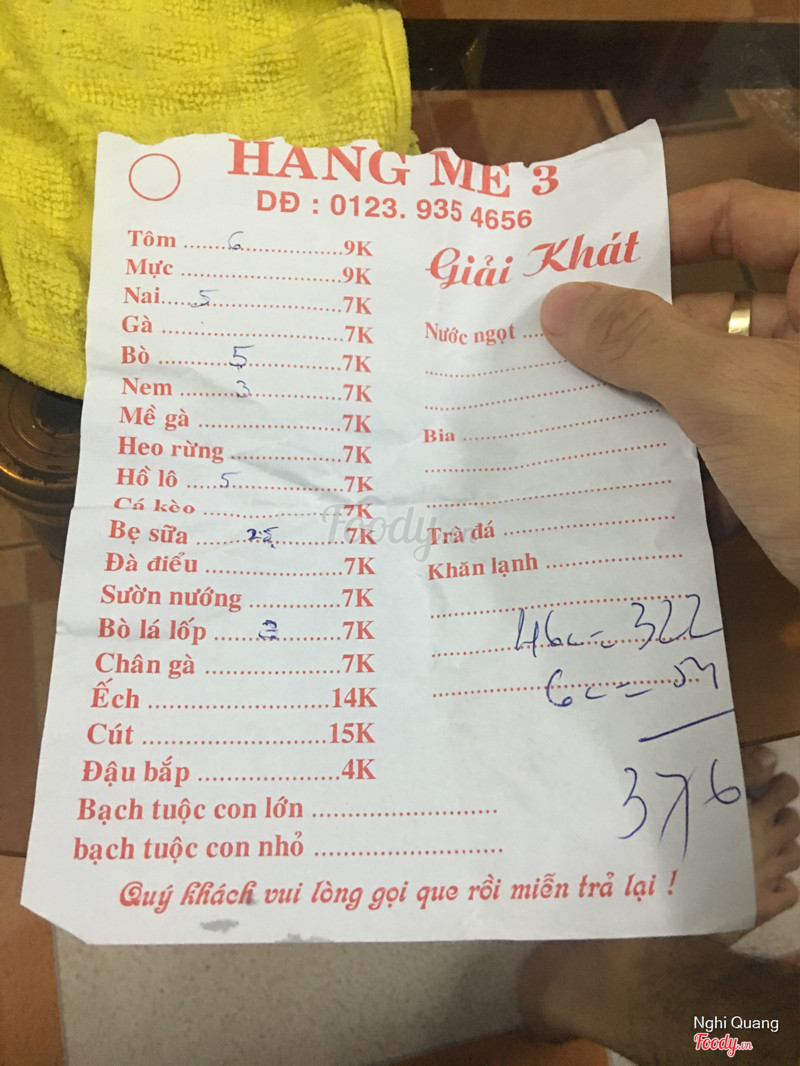 HÀNG MÉ 3
DĐ : 0123. 935 4656
Tôm ......6..................9K
Mực ........................9K
Nai.....5....................7K
Gà ...........................7K
Bò ...........5...............7K
Nem ..........3..............7K
Mề gà ......................7K
Heo rừng...................7K
Hồ lô .....5.................7K
Cá kèo......................7K
Bẹ sữa ........25..........7K
Đà điểu ......................7K
Sườn nướng ...............7K
Bò lá lốp ..................7K
Chân gà .....................7K
Ếch ..........................14K
Cút ..........................15K
Đậu bắp ....................4K
Bạch tuộc con lớn ............................
bạch tuộc con nhỏ ............................
Giải Khát
Nước ngọt ....
Bia ..............................
Trà đá ..........................
Khăn lạnh ......................
46c = 322
6c = 54
376
Quý khách vui lòng gọi que rồi miễn trả lại !
Foody.vn
Nghi Quang
Foody.vn